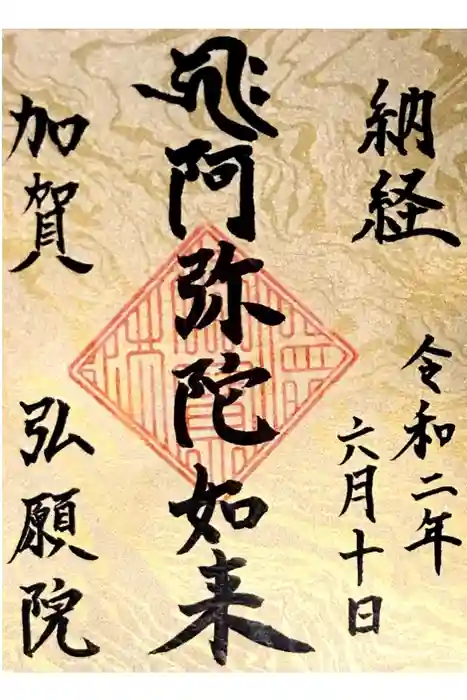 納経
令和二年
六月十日
飛阿弥陀如来
加賀
弘願院